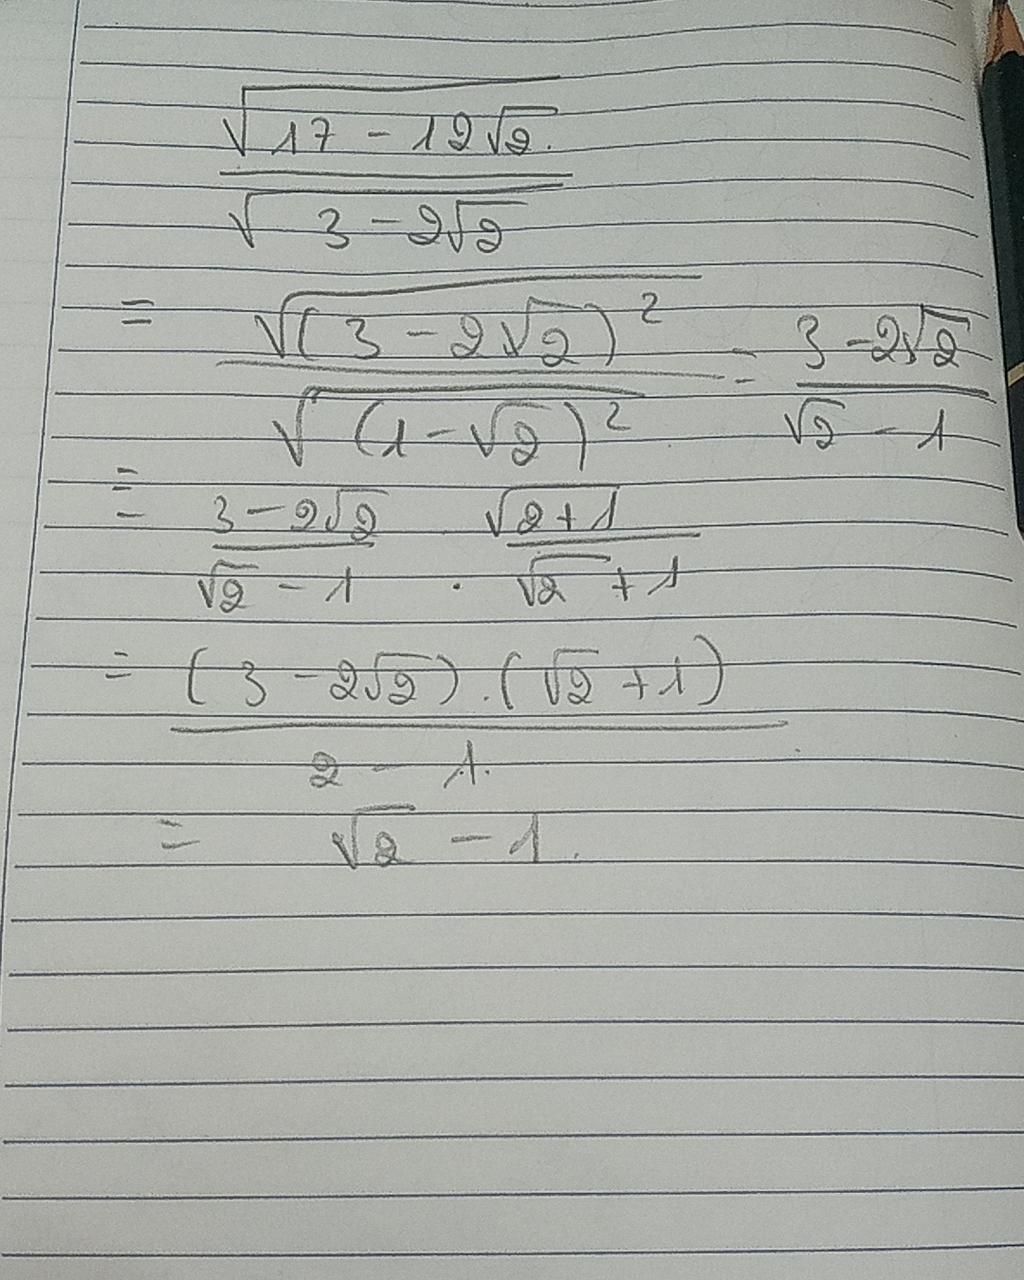 √(17 - 12√2)
√(3 - 2√2)
= √((3 - 2√2)²) / √((1 - √2)²) = (3 - 2√2) / (√2 - 1)
= (3 - 2√2) / (√2 - 1) · (√2 + 1) / (√2 + 1)
= (3 - 2√2) . (√2 + 1)
2 - 1.
= √2 - 1.